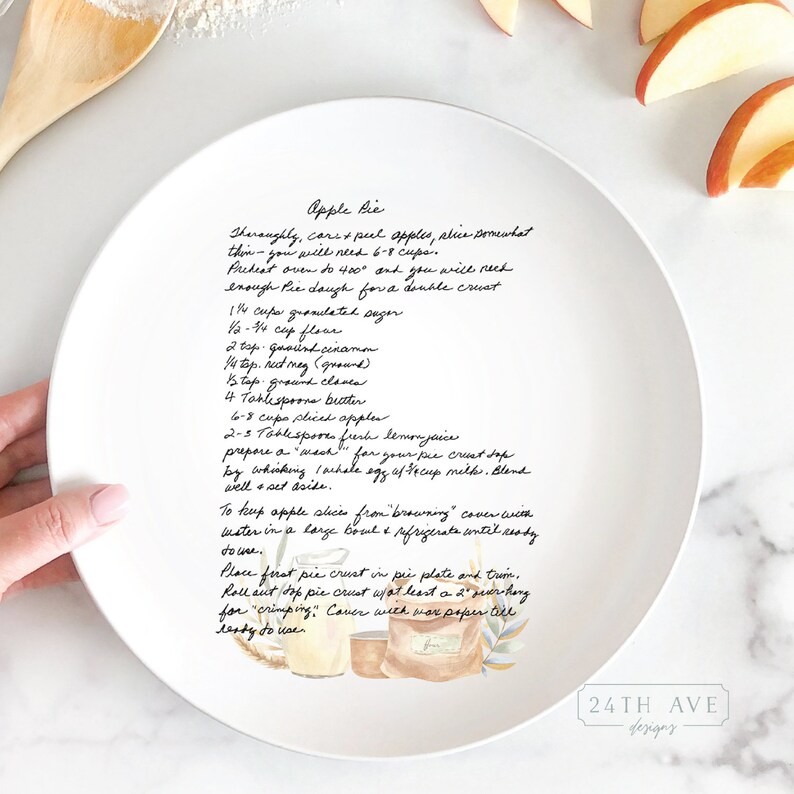 Apple Pie
Thoroughly, core & peel apples, slice somewhat
thin – you will need 6-8 cups.
Preheat oven to 400° and you will need
enough Pie dough for a double crust
1 1/4 cups granulated sugar
1/2 - 3/4 cup flour
2 tsp. ground cinamon
1/4 tsp. nutmeg (ground)
1/2 tsp. ground cloves
4 Tablespoons butter
6-8 cups sliced apples
2-3 Tablespoons fresh lemon juice
prepare a "wash" for your pie crust top
by whisking 1 whole egg w/ 3/4 cup milk. Blend
well & set aside.
To keep apple slices from "browning" cover with
water in a large bowl & refrigerate until ready
to use.
Place first pie crust in pie plate and trim.
Roll out top pie crust w/ at least a 2" over-hang
for "crimping". Cover with wax paper till
ready to use.
Flour
24TH AVE
designs